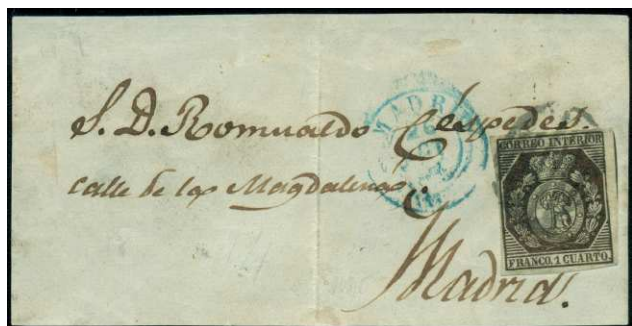 S. D. Romualdo Cespedes.
calle de las Magdalenas
Madrid.
MADRID
CORREO INTERIOR
FRANCO. 1 CUARTO.